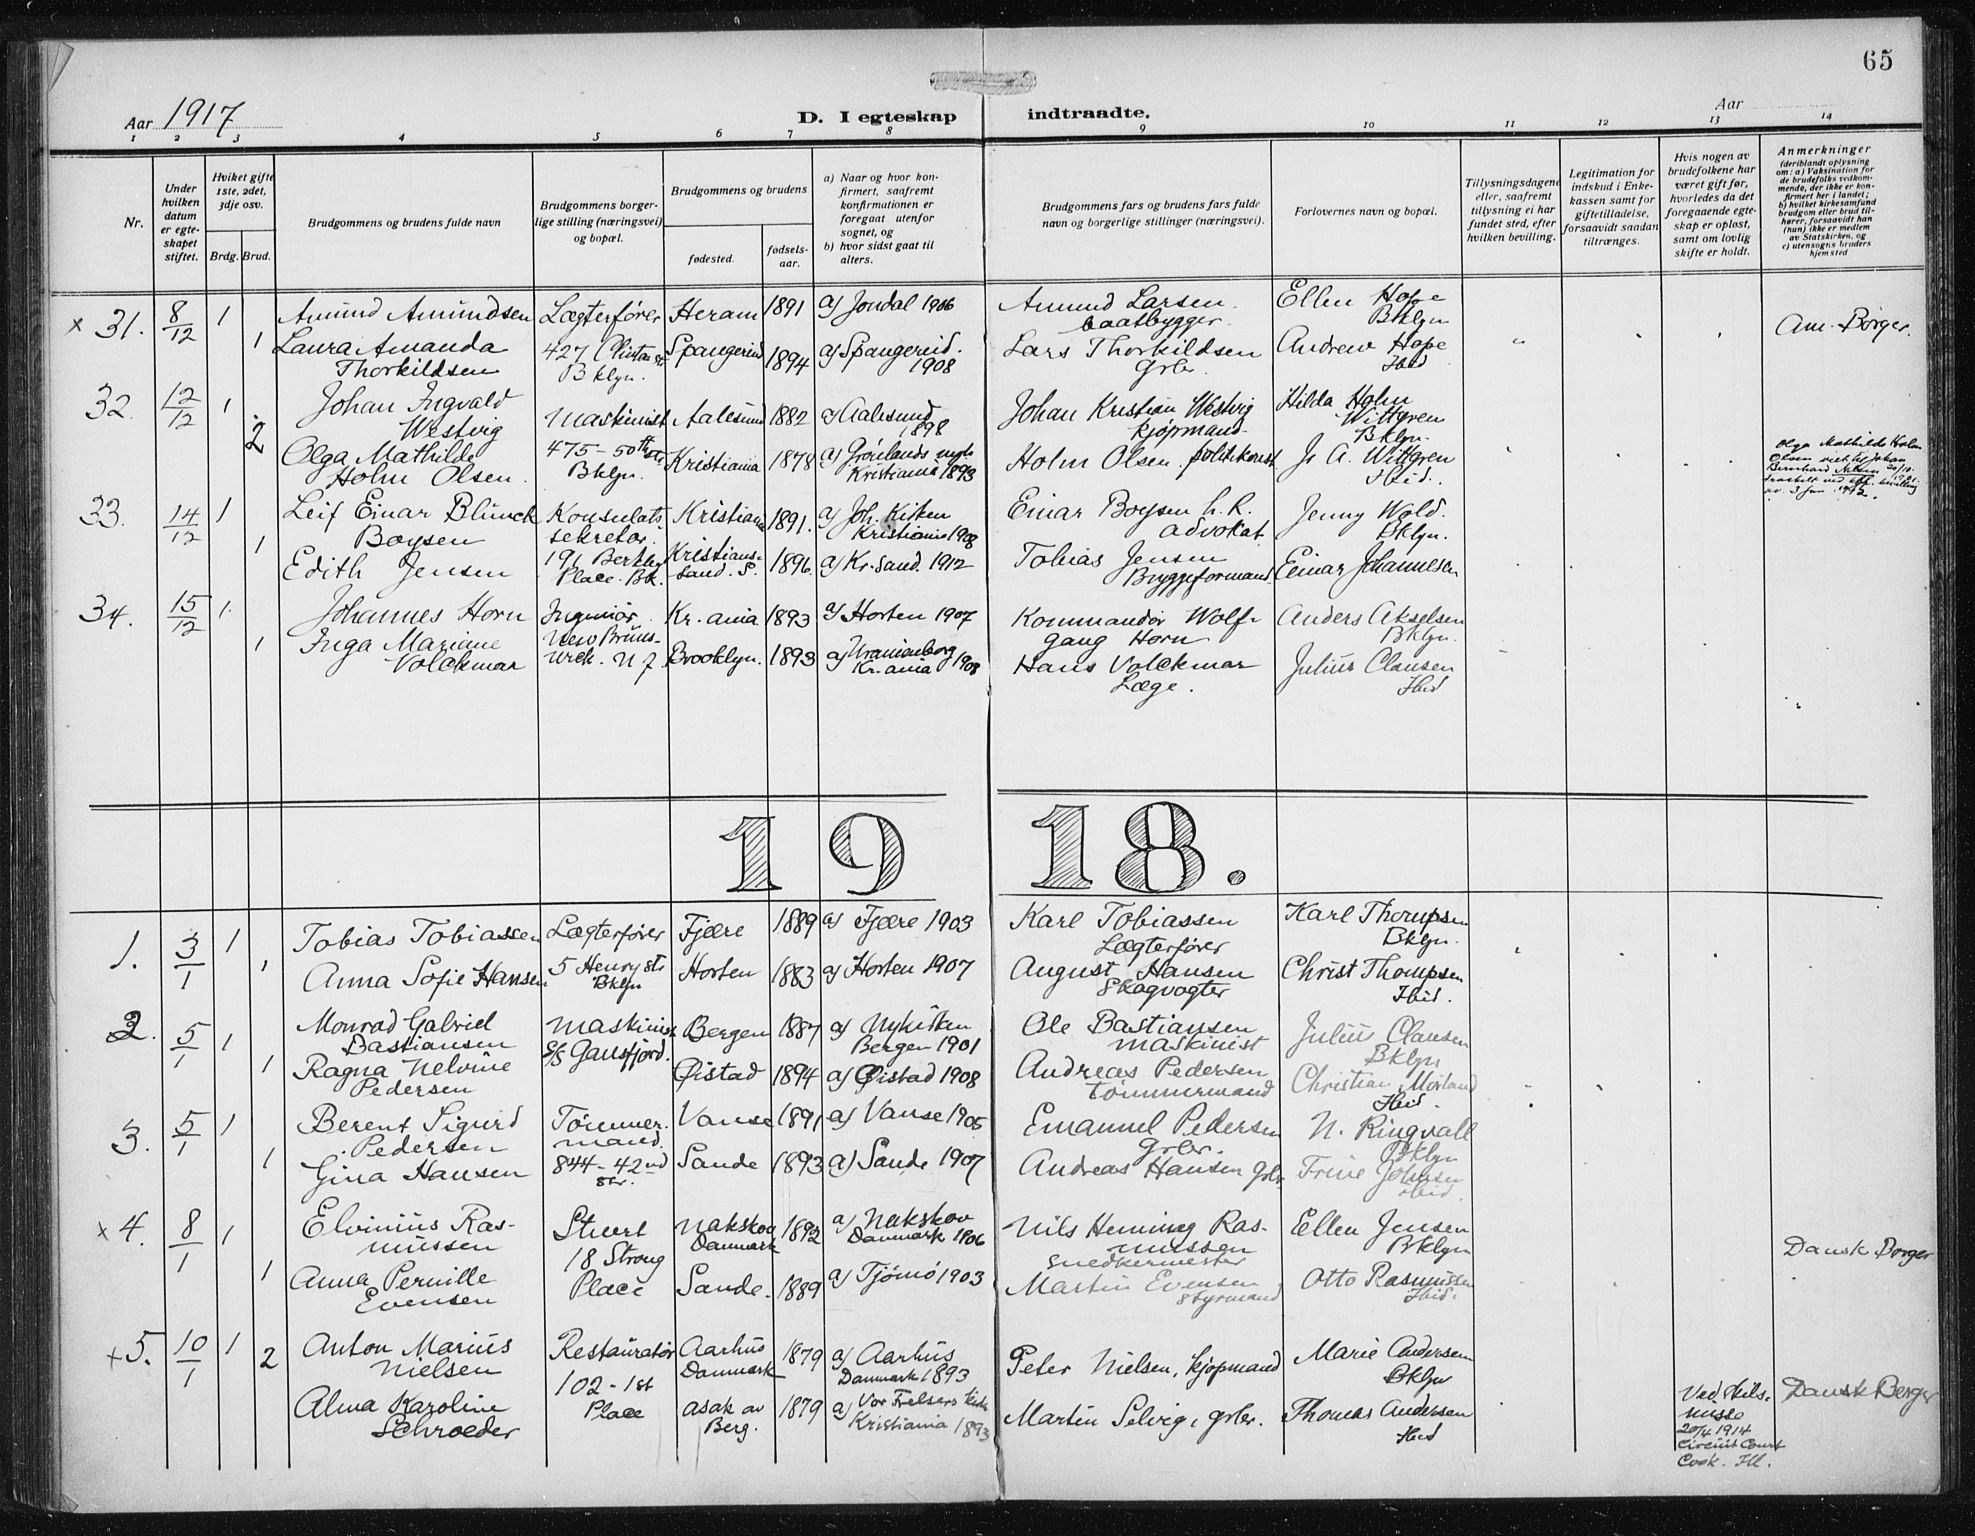 65
Aar 1917
D. I egteskap indtraadte.
Aar
1 2 3 4 5 6 7 8 9 10 11 12 13 14
Nr.
Under hvilken datum er egteskapet stiftet.
Hviket gifte 1ste, 2det, 3dje osv.
Brdg. Brud.
Brudgommens og brudens fulde navn
Brudgommens borgerlige stilling (næringsvei) og bopæl.
Brudgommens og brudens
fødested.
fødselsaar.
a) Naar og hvor konfirmert, saafremt konfirmationen er foregaat utenfor sognet, og
b) hvor sidst gaat til alters.
Brudgommens fars og brudens fars fulde navn og borgerlige stillinger (næringsvei).
Forlovernes navn og bopæl.
Tillysningsdagene eller, saafremt tillysning ei har fundet sted, efter hvilken bevilling.
Legitimation for indskud i Enkekassen samt for giftetilladelse, forsaavidt saadan tiltrænges.
Hvis nogen av brudefolkene har været gift før, hvorledes da det foregaaende egteskap er opløst, samt om lovlig skifte er holdt.
Anmerkninger
(deriblandt oplysning om: a) Vaksination for de brudefolks vedkommende, der ikke er konfirmert her i landet; b) hvilket kirkesamfund brudgom eller brud tilhører, forsaavidt han (hun) ikke er medlem av Statskirken, og c) utensogns bruders hjemsted
x 31. 8/12 1 Amund Amundsen Lægterfører Heram 1891 a) Jondal 1906 Amund Larsen baatbygger. Ellen Hope Bklyn Am. Borger.
1 Laura Amanda Thorkildsen 427 Clinton St Bklyn. Spangereid 1894 a) Spangereid. 1908 Lars Thorkildsen Grbr. Andrew Hope Ibid
32. 12/12 1 Johan Ingvald Westvig Maskinist Aalesund 1882 a) Aalesund 1898 Johan Kristian Westvig kjøpmand Hilda Holm Wittgren Bklyn.
2 Olga Mathilde Holm Olsen 475 - 50th Bklyn. Kristiania 1878 a) Grønlands Kristiania 1893 Holm Olsen. politikonst. J. A. Wittgren Ibid.
Olga Mathilde Holm Olsen viet til Johan Bernhard
33. 14/12 1 Leif Einar Blunck Boysen Konsulatssekretær Kristiania 1891. a) Joh. Kirken Kristiania 1908 Einar Boysen h.R. advokat Jenny Wold. Bklyn.
1 Edith Jensen 191 Berkley Place. Bk. Kristianssand. S. 1896 a) Kr.sand. 1912 Tobias Jensen Bryggeformand Einar Johannesen
34. 15/12 1 Johannes Horn Ingeniør Kr.ania 1893 a) Horten 1907 Kommandør Wolfgang Horn Anders Akselsen Bklyn.
1 Inga Mariane Volckmar New Brunswick. N.J. Brooklyn. 1893 a) Uranienborg Kr.ania 1908 Hans Volckmar Læge. Julius Clausen Ibid
1918.
1. 3/1 1 Tobias Tobiassen Lægterfører Fjære 1889 a) Fjære 1903 Karl Tobiassen Lægterfører Karl Thompsen Bklyn.
1 Anna Sofie Hansen 5 Henry Str Bklyn Horten 1883 a) Horten 1907 August Hansen Skogvogter Christ Thompsen Ibid.
2. 5/1 1 Monrad Gabriel Bastiansen Maskinist S/S Gansfjord. Bergen 1887 a) Nykirken Bergen 1901 Ole Bastiansen Maskinist Julius Clausen Bklyn
1 Ragna Nelvine Pedersen Øistad 1894 a) Øistad 1908 Andreas Pedersen Tømmermand Christian Morland Ibid.
3. 5/1 1 Berent Sigurd Pedersen Tømmermand Vanse 1891 a) Vanse 1905 Emanuel Pedersen Grbr. N. Ringvall Bklyn
1 Gina Hansen 844 - 42nd Str. Sande 1893 a) Sande 1907 Andreas Hansen Grbr. Trine Johnsen Ibid.
x 4. 8/1 1 Elvinius Rasmussen Stuert Nakskov Danmark 1892 a) Nakskov Danmark 1906 Nils Henning Rasmussen Snedkermester Ellen Jensen Bklyn Dansk Borger
1 Anna Pernille Evensen 18 Strong Place Sande. 1889 a) Tjømø 1903 Martin Evensen Styrmand Otto Rasmussen Ibid.
x 5. 10/1 1 Anton Marius Nielsen Restauratør Aarhus Danmark 1879 a) Aarhus Danmark 1893 Peter Nielsen, kjøpmand Marie Andersen Bklyn
2 Alma Karoline Schroeder 102 - 1st Place asak av Berg. 1879 a) Vor Frelsers kirke Kristiania 1893 Martin Selvig, grbr. Thomas Andersen Ibid Ved skilsmisse 20/4 1914 Circuit Court Cook. Ill. Dansk Borger